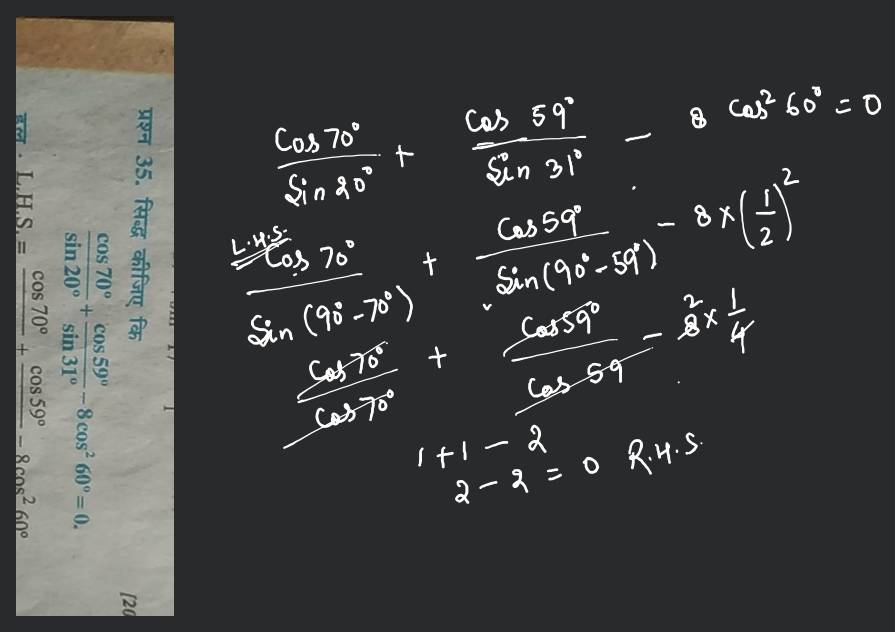 प्रश्न 35. सिद्ध कीजिए कि
cos 70°/sin 20° + cos 59°/sin 31° − 8 cos² 60° = 0.
हल : L.H.S. = cos 70° + cos 59° − 8 cos² 60°
[20
Cos 70°/Sin 20° + Cos 59°/Sin 31° − 8 Cos² 60° = 0
L.H.S.
Cos 70°/Sin (90° − 70°) + Cos 59°/Sin (90° − 59°) − 8 × (1/2)²
Cos 70°/Cos 70° + Cos 59°/Cos 59 − 8 2 × 1/4
1 + 1 − 2
2 − 2 = 0 R.H.S.